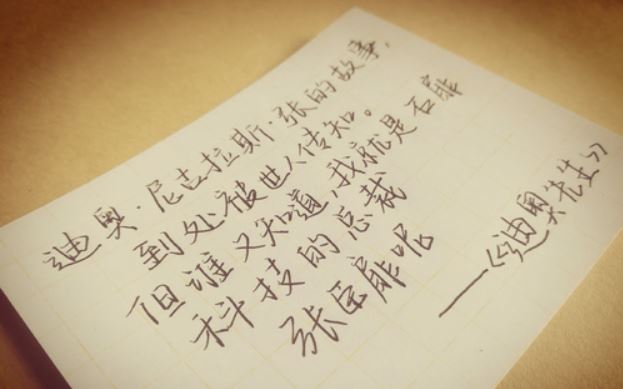 迪奥·尼古拉斯·张的故事，
到处被世人传知。
但谁又知道，我就是石扉
科技的总裁
张臣扉呢
——《迪奥先生》